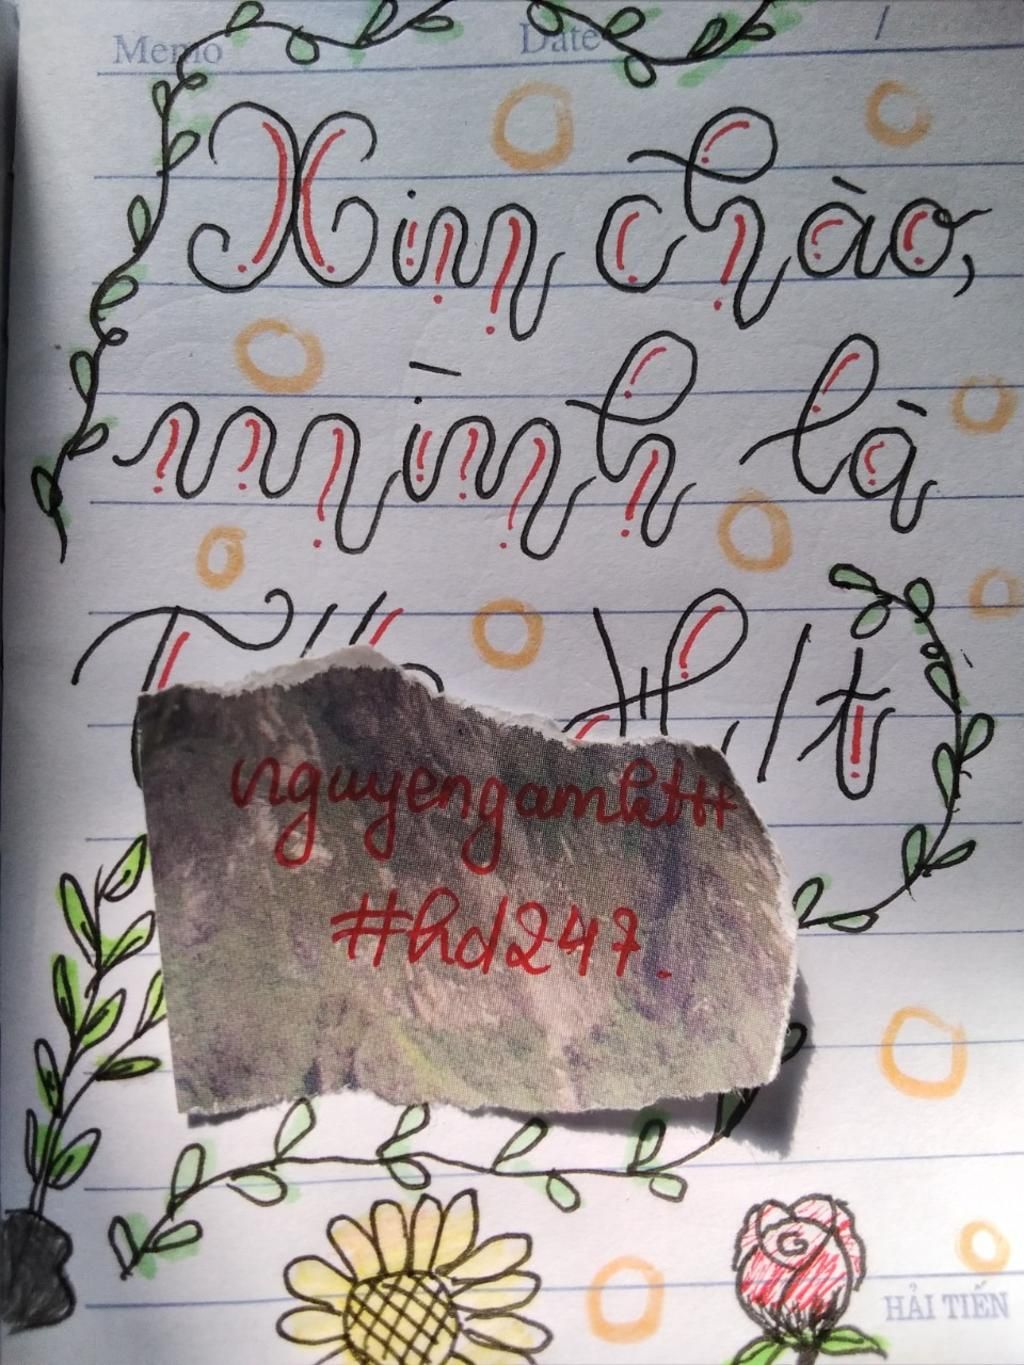 Memo Date /
Xin chào,
mình là
nguyengamkttt
#hd247.
HẢI TIẾN